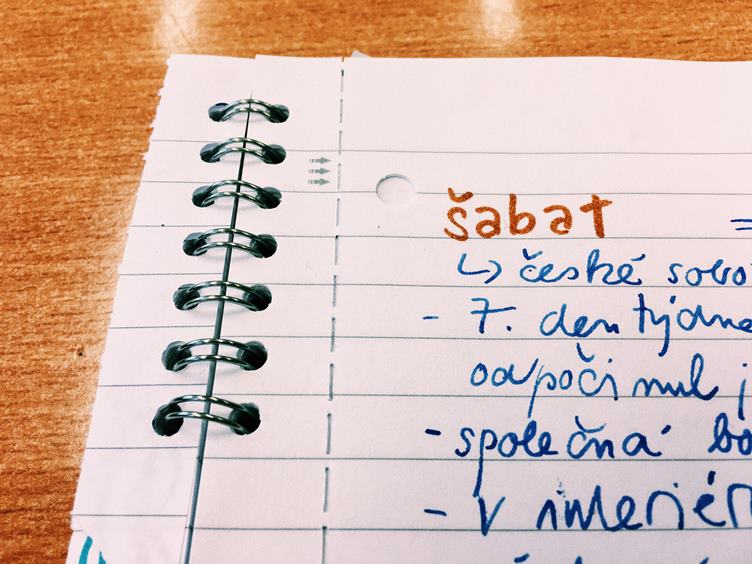 šabat =
↳ české sobo
- 7. den týdne
odpočinul j
- společná bo
- V interiér